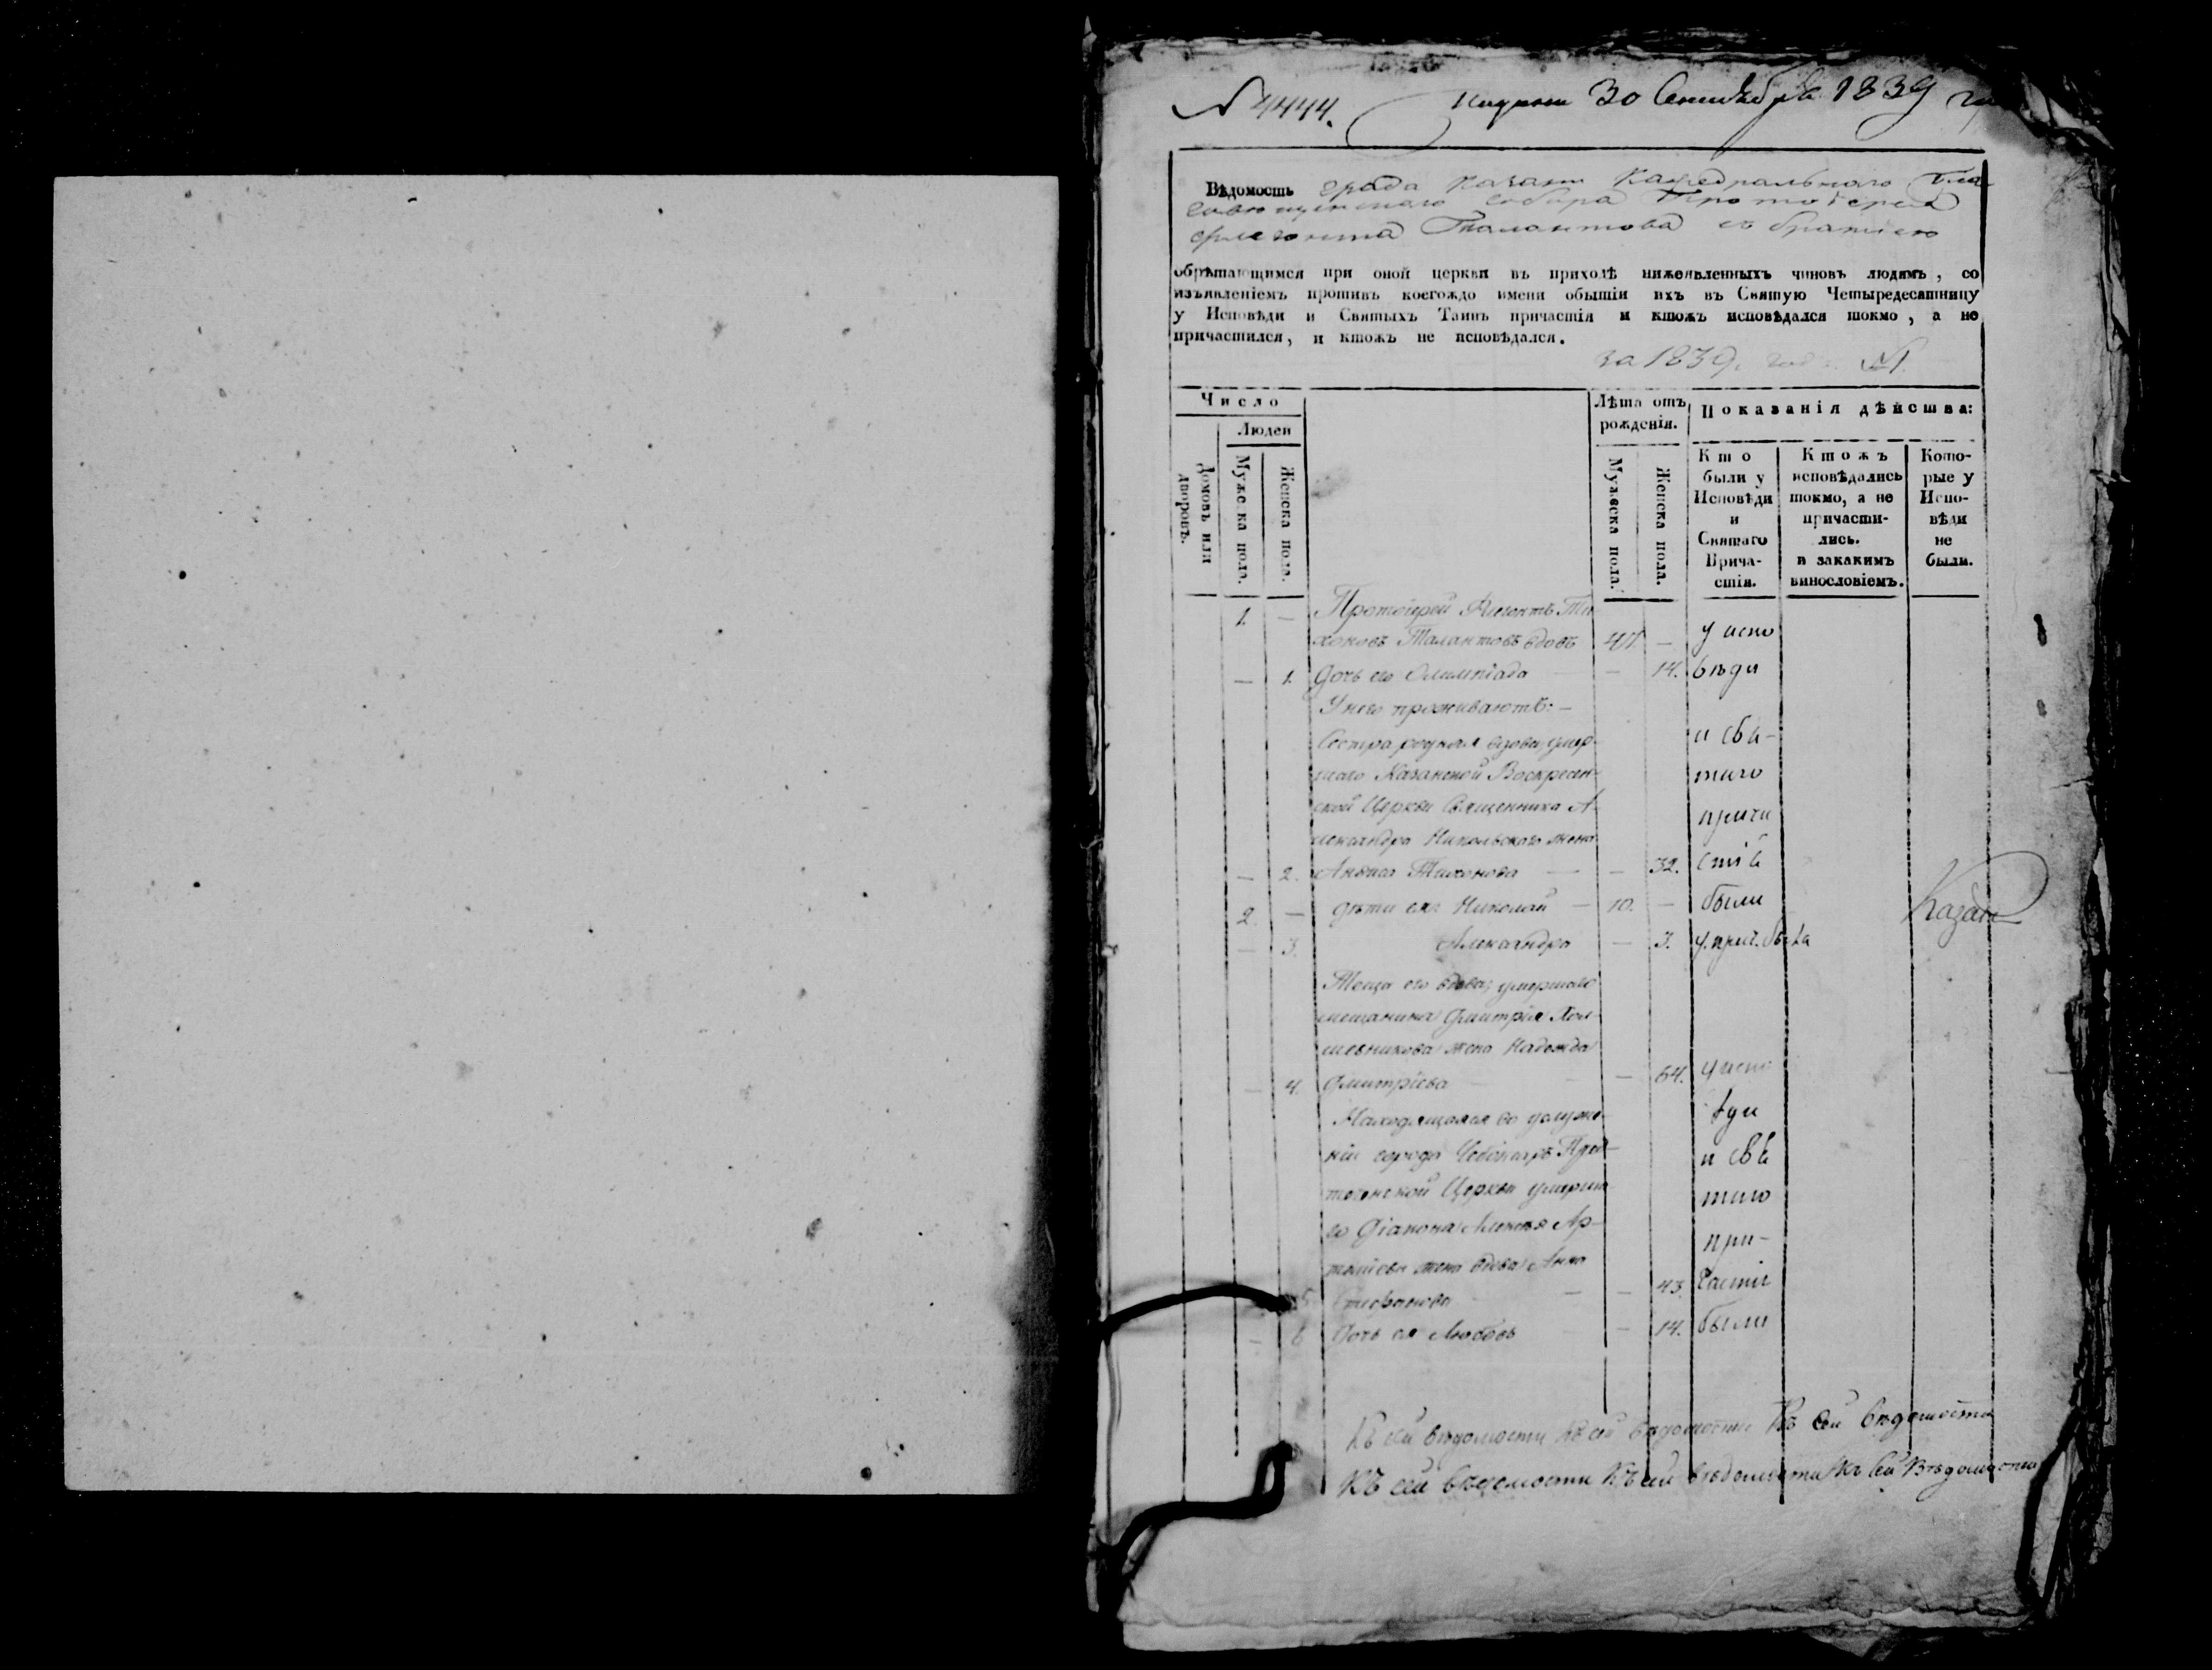 № 4444.
30 Сентября 1839
Вѣдомость града Казани Кафедральнаго Бла-
говѣщенскаго собора Протоіерея
Флегонта Талантова съ братіею
обрѣтающимся при оной церкви въ приходѣ нижеявленныхъ чиновъ людямъ, со
изъявленіемъ противъ коегождо имени обытіи ихъ въ Святую Четыредесятницу
у Исповѣди и Святыхъ Таинъ причастія и ктожъ исповѣдался токмо, а не
причастился, и ктожъ не исповѣдался.
за 1839. годъ №1.
Число
Людей
Домовъ или дворовъ.
Мужеска пола.
Женска пола.
Лѣта отъ
рожденія.
Мужеска пола.
Женска пола.
Показанія дѣйства:
Кто
были у
Исповѣди
и
Святаго
Прича-
стія.
Ктожъ
исповѣдались
токмо, а не
причасти-
лись.
и закакимъ
винословіемъ.
Кото-
рые у
Испо-
вѣди
не
были.
1. — Протоіерей Флегонтъ Ти-
хоновъ Талантовъ вдовъ 47. — у испо
— 1. Дочь его Олимпіада — 14. вѣди
У него проживаютъ: —
Сестра родная вдова, умер- и свя-
шаго Казанской Воскресен- таго
ской Церкви Священника А- прича
лександра Никольскаго жена
— 2. Анѳиса Тихонова — — 32. стія
2. — дѣти ея: Николай — 10. — были
— 3. Александра — 3. у прич. была
Казан
Теща его вдова, умершаго
мещанина Дмитрія
жена Надежда
— 4. Дмитріева — 64. у испо
Находящаяся во услуже- вѣди
ніи города Чебоксаръ Пред- и свя
теченской Церкви умерша- таго
го Діакона Алексѣя Ар- при-
жена вдова Анна
5 Стефанова — — 43. частія
— 6 Дочь ея Любовь — 14. были
Къ сей вѣдомости Къ сей вѣдомости Къ сей вѣдомости
Къ сей вѣдомости Къ сей вѣдомости Къ сей Вѣдомости